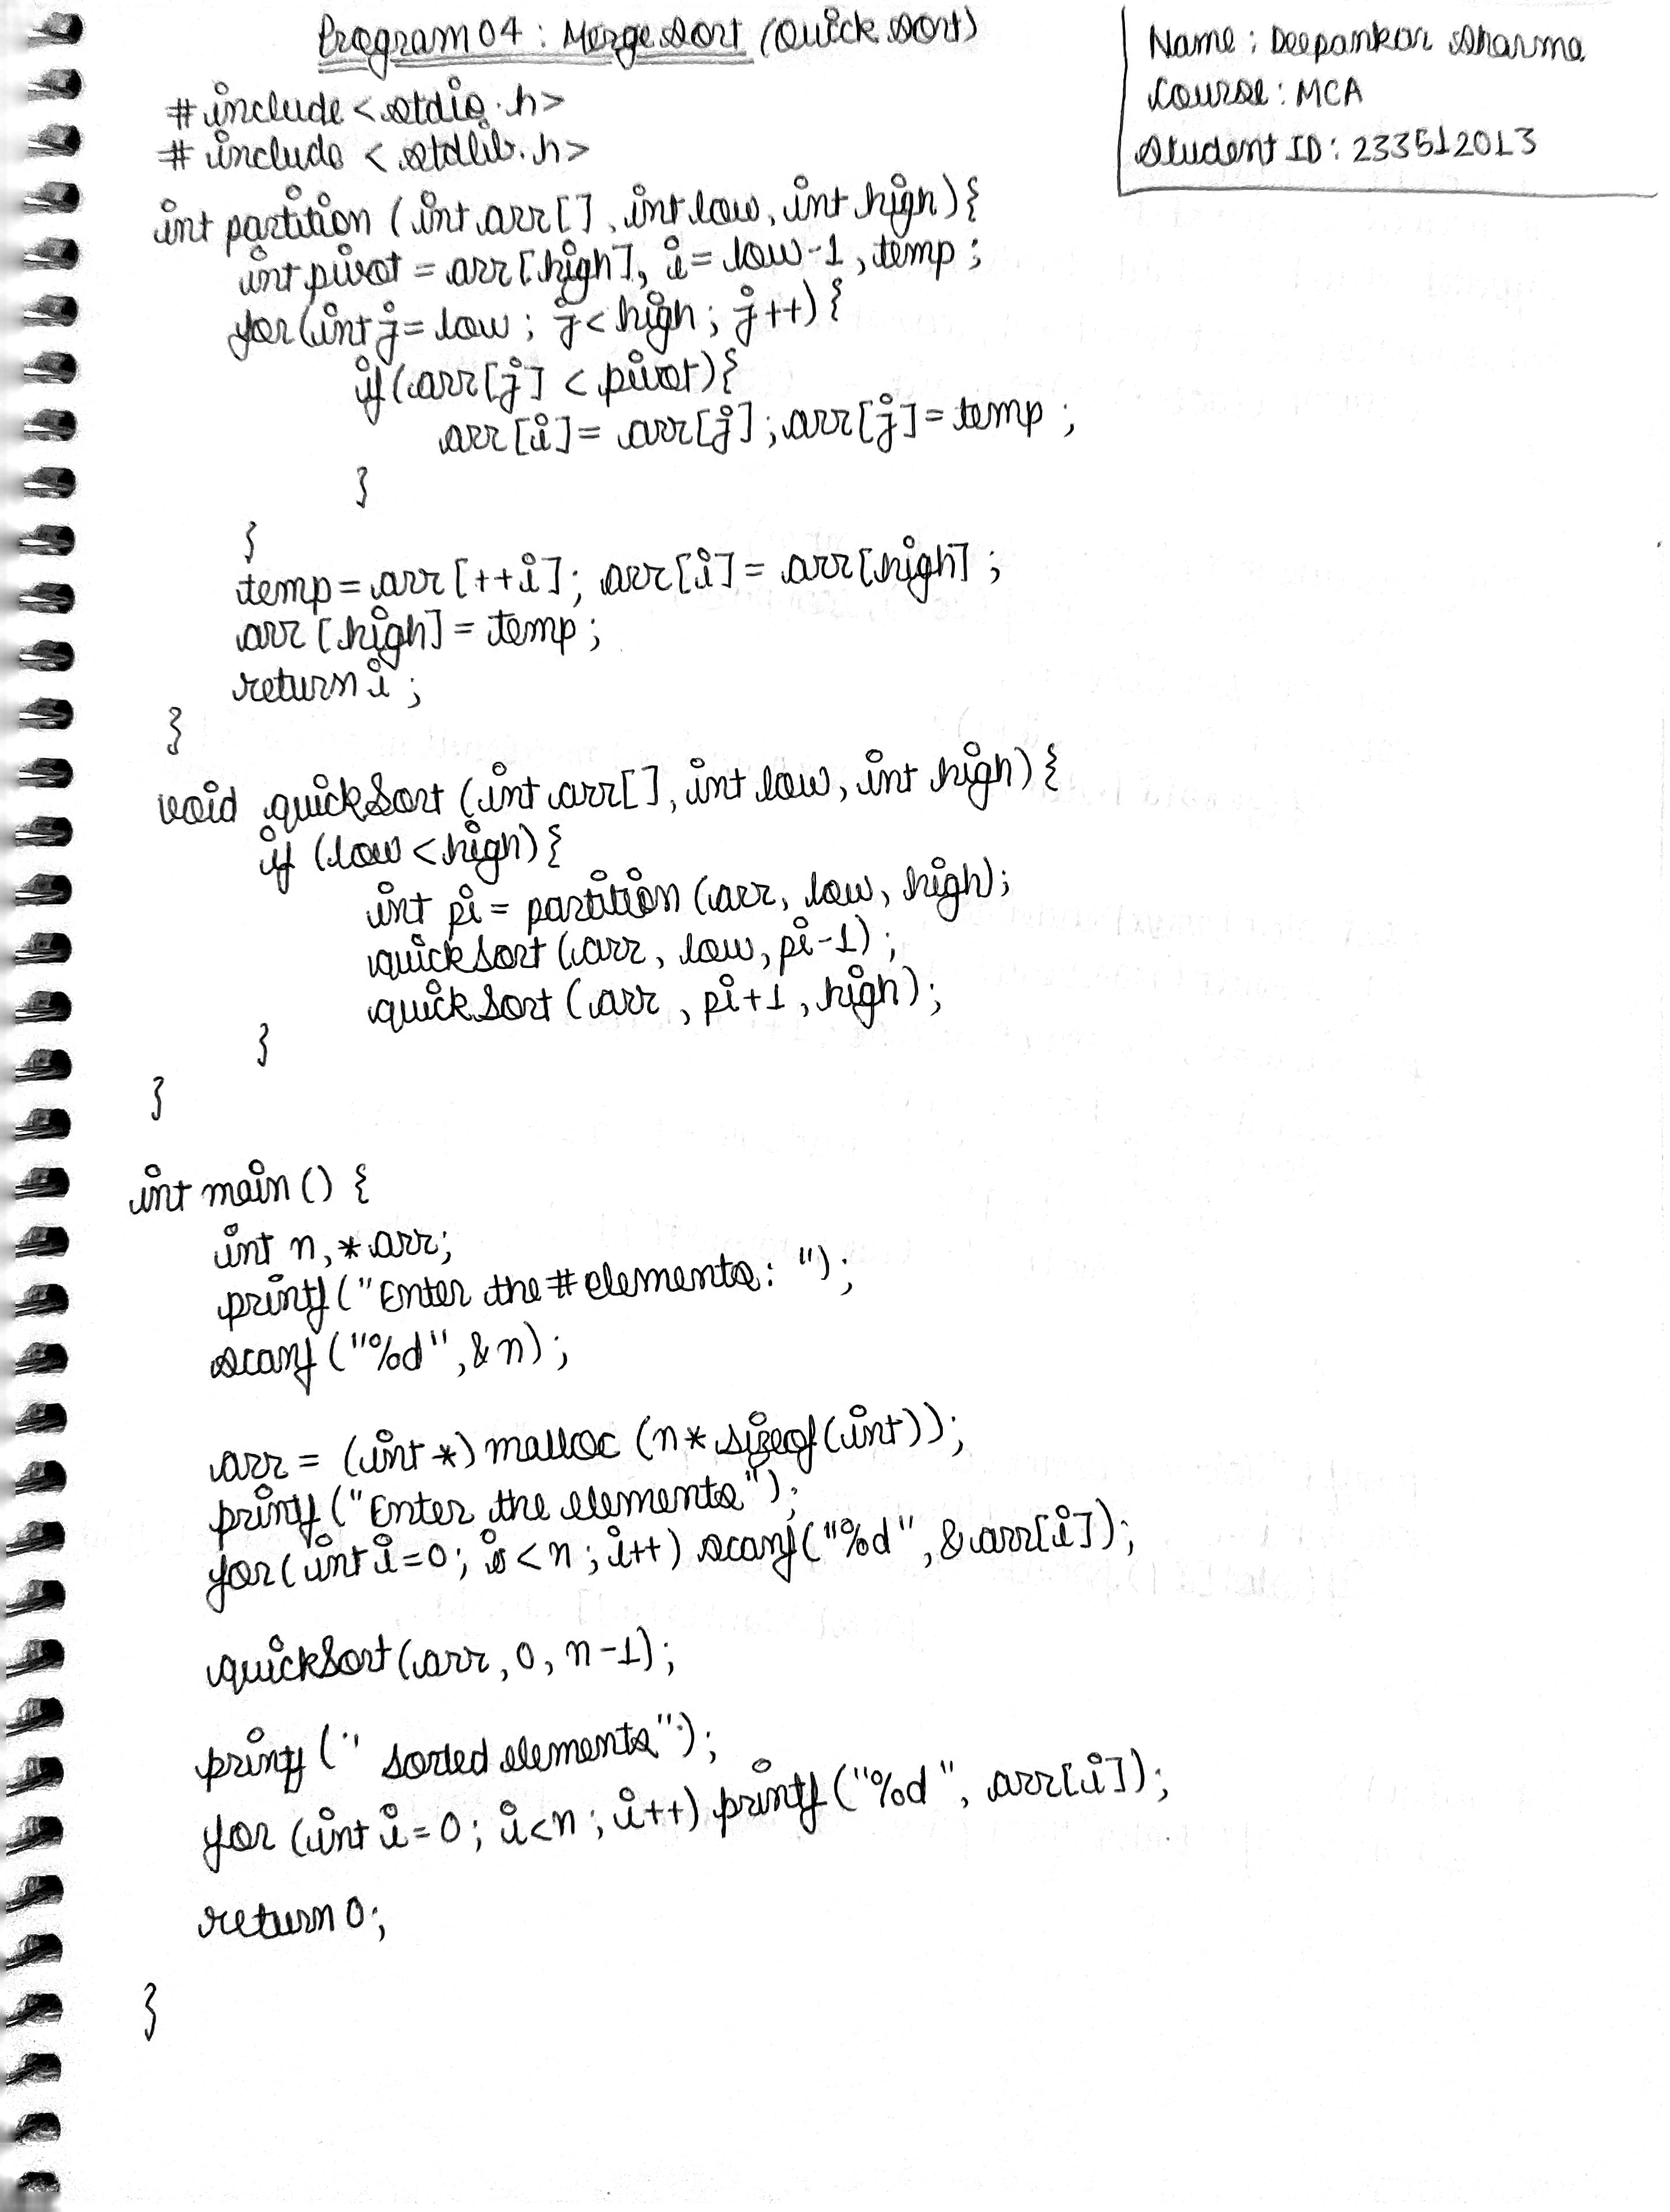 Program 04 : Merge Sort (Quick Sort)
Name : Deepankar Sharma
Course : MCA
Student ID : 233512013
#include <stdio.h>
#include <stdlib.h>
int partition (int arr[], int low, int high){
int pivot = arr[high], i = low-1, temp;
for(int j = low; j < high; j++){
if(arr[j] < pivot){
arr[i] = arr[j]; arr[j] = temp;
}
}
temp = arr[++i]; arr[i] = arr[high];
arr[high] = temp;
return i;
}
void quickSort (int arr[], int low, int high){
if (low < high){
int pi = partition (arr, low, high);
quickSort (arr, low, pi-1);
quickSort (arr, pi+1, high);
}
}
int main () {
int n, *arr;
printf ("Enter the # elements: ");
scanf ("%d", &n);
arr = (int *) malloc (n * sizeof(int));
printf ("Enter the elements");
for(int i=0; i<n; i++) scanf("%d", &arr[i]);
quickSort(arr, 0, n-1);
printf (" Sorted elements");
for (int i=0; i<n; i++) printf ("%d", arr[i]);
return 0;
}